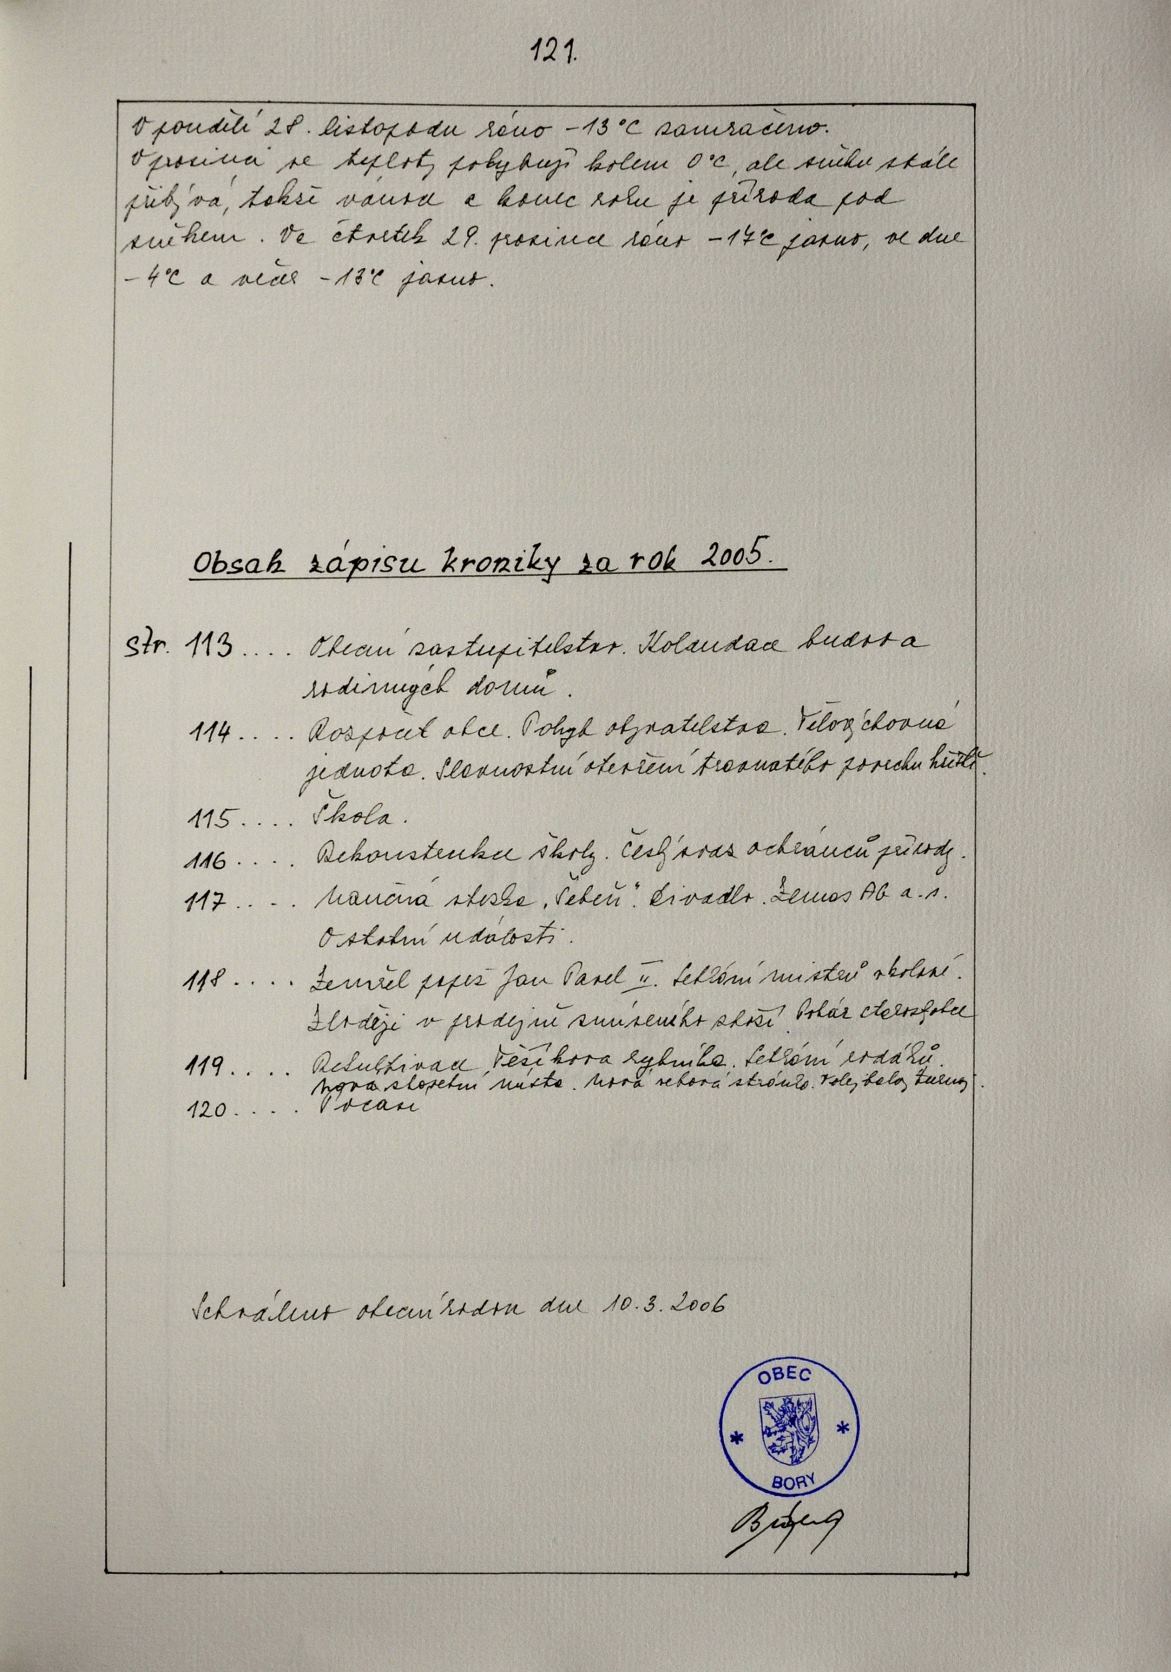 121.
V pondělí 28. listopadu ráno -13°C zamračeno.
V prosinci se teploty pohybují kolem 0°C, ale sněhu stále
přibývá, takže vánoce a konec roku je příroda pod
sněhem. Ve čtvrtek 29. prosince ráno -17°C jasno, ve dne
-4°C a večer -13°C jasno.
Obsah zápisu kroniky za rok 2005.
Str. 113.... Obecní zastupitelstvo. Kolaudace budov a
rodinných domů.
114.... Rozpočet obce. Pohyb obyvatelstva. Tělovýchovná
jednota. Slavnostní otevření travnatého povrchu hřiště.
115.... Škola.
116.... Rekonstrukce školy. Český svaz ochránců přírody.
117.... Naučná stezka "Babeň". Divadlo. Zemas AG a.s.
Ostatní události.
118.... Zemřel papež Jan Pavel II. Setkání mistrů okolové.
Zloději v prodejně smíšeného zboží. Pohár starosty obce
119.... Rekultivace Těšíkova rybníka. Setkání rodáků.
Nová sběrná místa. Nová webová stránka. Volejbalový turnaj.
120.... Počasí
Schváleno obecní radou dne 10.3.2006
OBEC
BORY